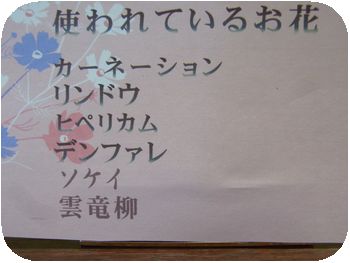 使われているお花
カーネーション
リンドウ
ヒペリカム
デンファレ
ソケイ
雲竜柳